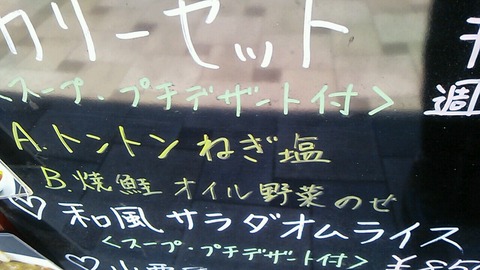 クリーセット
<スープ・プチデザート付>
週
A.トントンねぎ塩
B.焼鮭オイル野菜のせ
♡和風サラダオムライス
<スープ・プチデザート付> ¥850
♡